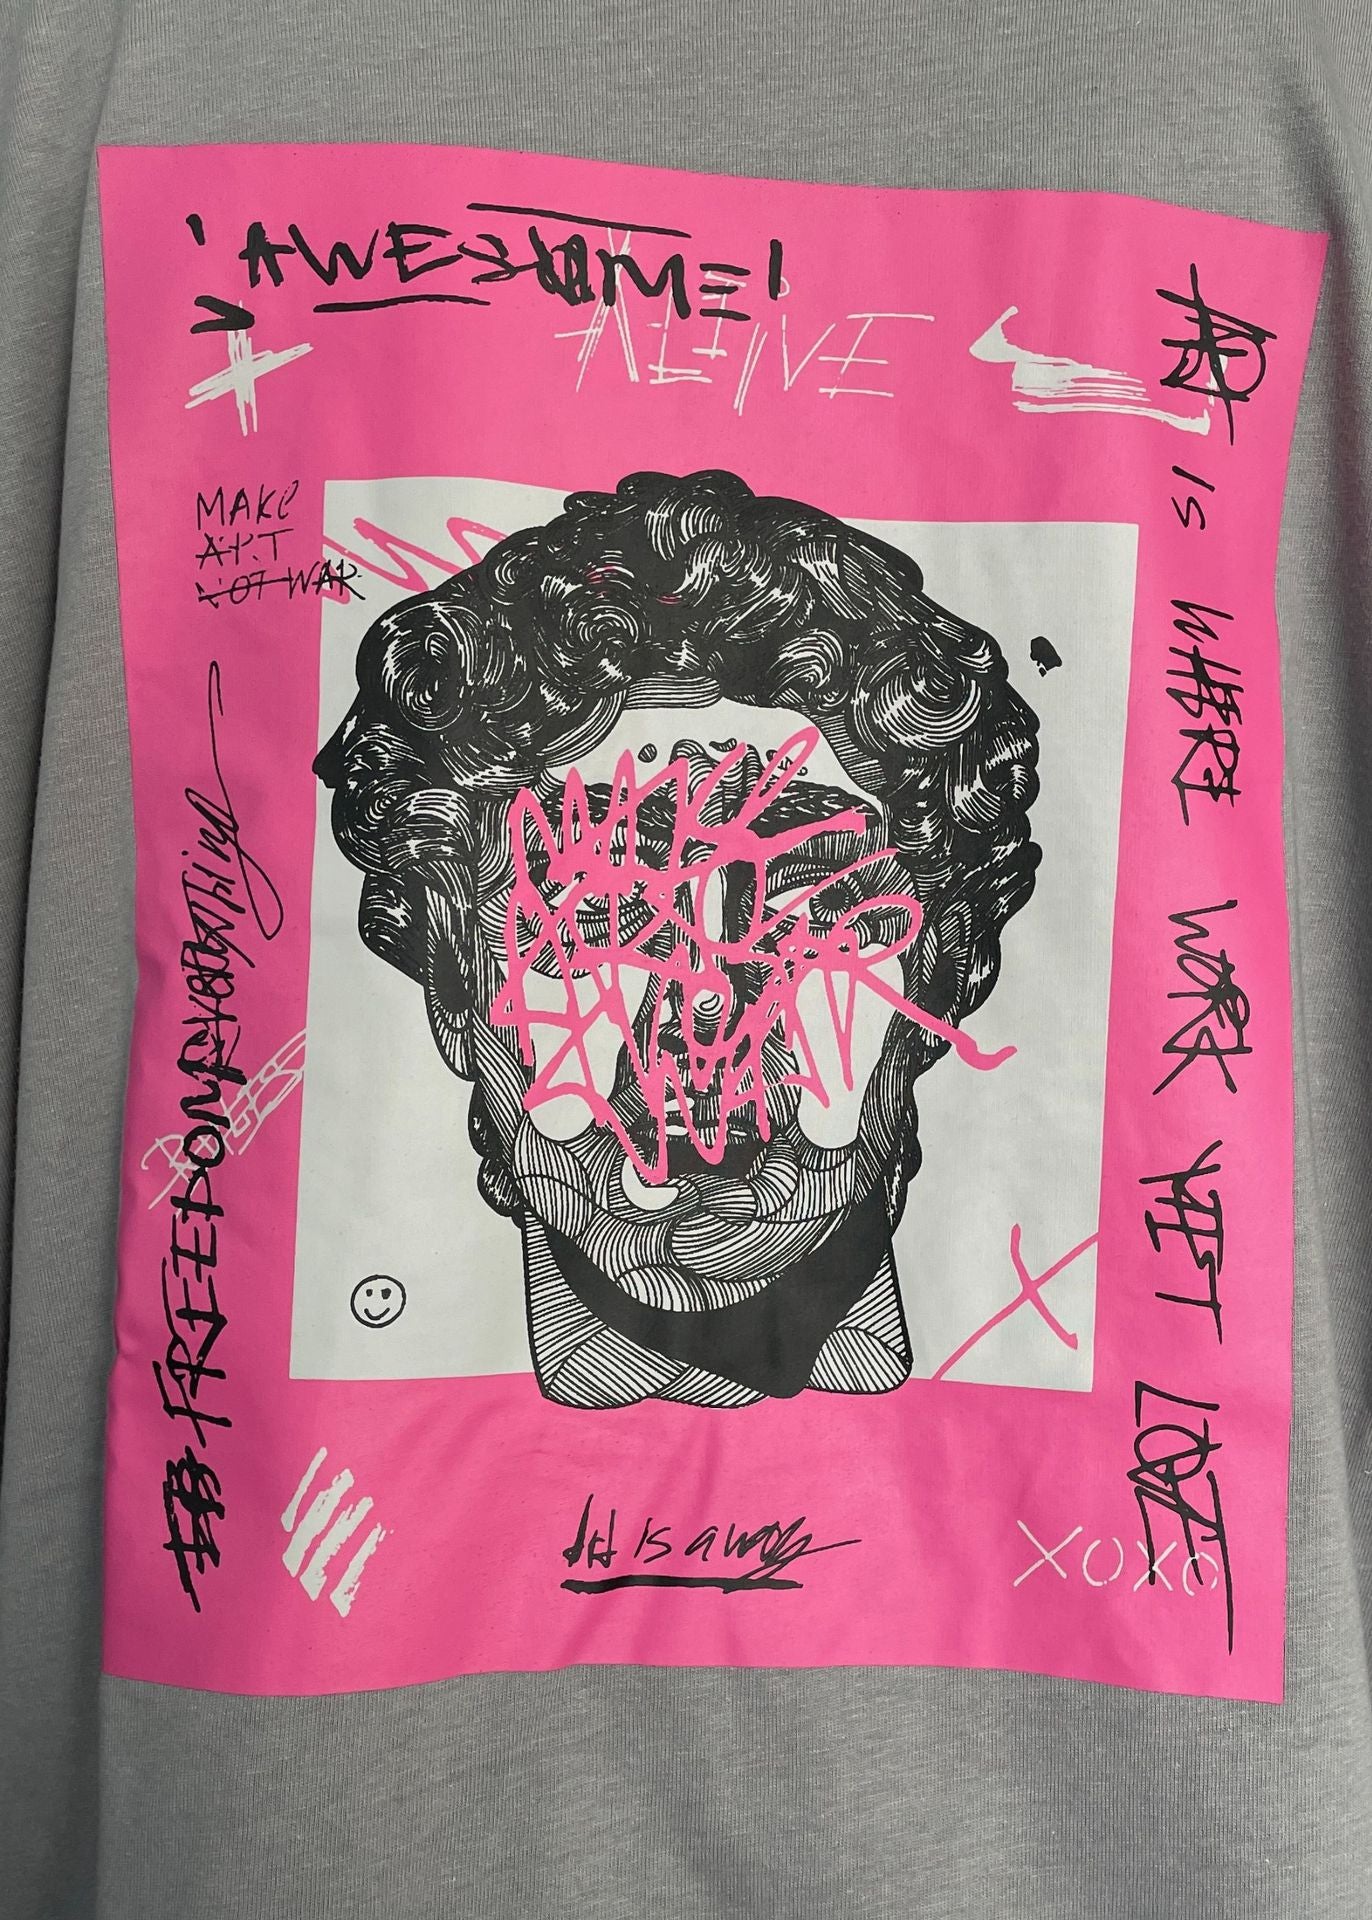 'AWESOME'
ALIVE
MAKE
ART
NOT WAR
ART
IS
WHERE
WORK
MEET
LOVE
FREEDOM
MAKE
ART
NOT
WAR
Art is a way
XOXO